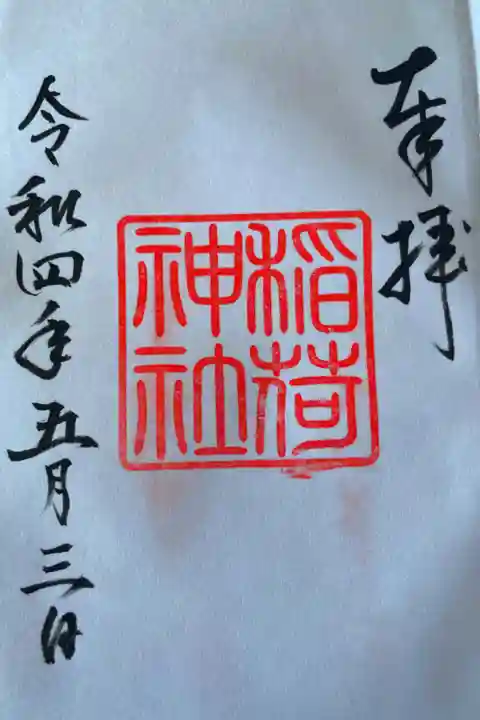 奉拝
稲荷
神社
令和四年五月三日